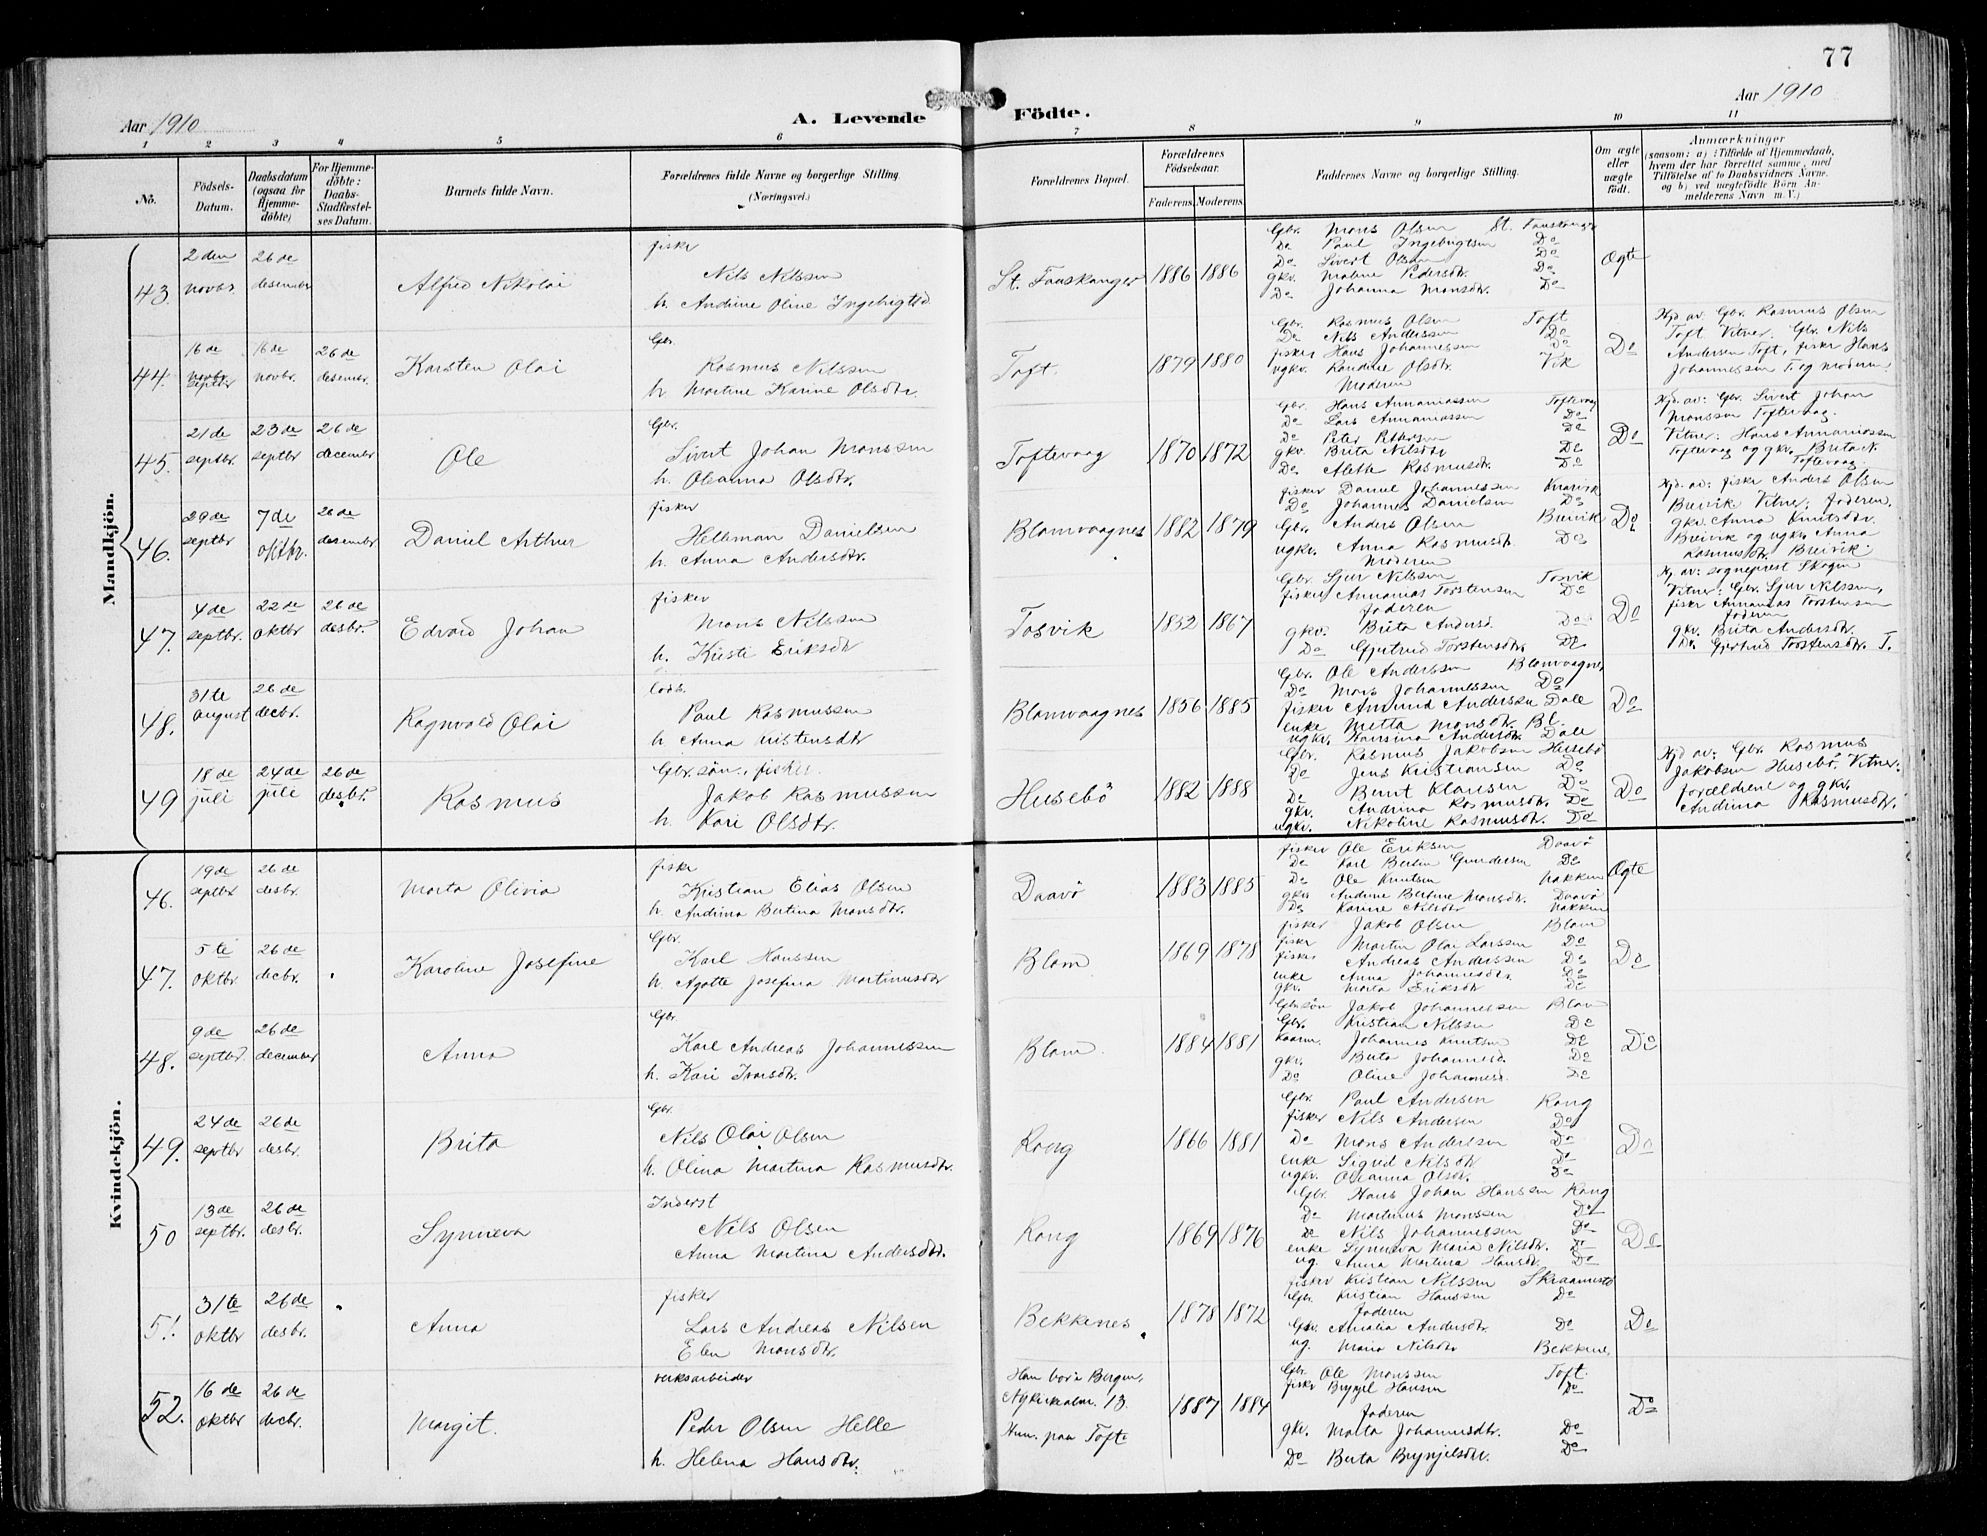 77
Aar 1910
A. Levende Födte.
Aar 1910
1 2 3 4 5 6 7 8 9 10 11
No.
Födsels-Datum.
Daabsdatum (ogsaa for Hjemme-döbte)
For Hjemme-döbte: Daabs-Stadfæstel-ses Datum.
Barnets fulde Navn.
Forældrenes fulde Navne og borgerlige Stilling.
(Næringsvei.)
Forældrenes Bopæl.
Forældrenes Födselsaar.
Faderens. Moderens.
Faddernes Navne og borgerlige Stilling.
Om ægte eller uægte födt.
Anmærkninger
(saasom: a) i Tilfælde af Hjemmedaab, hvem der har forrettet samme, med Tilföielse af to Daabsvidners Navne. og b) ved uægtefödte Börn An-melderens Navn m. V.)
Mandkjön.
43. 2den novbr. 26de desember
Alfred Nikolai
fisker
Nils Nilssen
h. Andrine Oline Ingebrigtsd.
St. Fauskanger 1886 1886
Gbr. Mons Olsen St. Fauskanger
Do Paul Ingebrigtsen Do
Do Sivert Olsen Do
gkv. Malene Pedersdtr. Do
Do Johanna Monsdtr. Do
Ægte
44. 16de novbr. septbr 16de novbr. 26de desembr.
Karsten Olai
Gbr.
Rasmus Nilssen
h. Martine Karine Olsdtr.
Toft. 1879 1880
Gbr. Rasmus Olsen Toft
Do Nils Anderssen Do
fisker Hans Johannessen Do
ugkv. Olsdtr. Vik
Moderen
Do
Hjd av. Gbr. Rasmus Olsen
Toft Vitner. Gbr. Nils
Andersen Toft, fisker Hans
Johannessen T. og moderen
45. 21de septbr. 23de septbr 26de decembr
Ole
Gbr.
Sivert Johan Monssen
h. Oleanna Olsdtr.
Toftevaag 1870 1872
Gbr. Hans Annaniassen Toftevaag
Do Lars Annaniassen Do
Do Peter Do
gkv. Brita Nilsdtr Do
Do Alette Rasmusdtr. Do
Do
Hjd. av: Gbr. Sivert Johan
Monssen Toftevaag.
Vitner: Hans Annaniassen
Toftevaag og gkv. Brita N.
Toftevaag
46. 29de septbr 7de oktbr. 26de desembr
Daniel Arthur
fisker
Helleman Danielsen
h. Anna Andersdtr.
Blomvaagnes 1882 1879
fisker Daniel Johannessen Knarvik
Do Johannes Danielsen Do
Gbr. Anders Olsen Breivik
ugkv. Anna Rasmusdtr. Do
Moderen
Do
Hjd. av: fisker Anders Olsen
Breivik Vitner, Faderen,
gkv. Anna Knutsdtr.
Breivik og ugkv. Anna
Rasmusdtr. Breivik.
47. 4de septbr. 22de oktbr 26de desbr.
Edvard Johan
fisker
Mons Nilssen
h. Kristi Eriksdtr
Tosvik 1852 1867
Gbr. Sjur Nilssen Tosvik
fisker Annanias Torstensen Do
Faderen
gkv. Brita Andersd. Do
Do Gjertrud Torstensdtr. Do
Do
Hj. av: sogneprest Skogen
Vitner: Gbr. Sjur Nilssen,
fisker Annanias Torstensen
faderen
gkv. Brita Andersdtr.
Do. Gjertrud Torstensdtr. T.
48. 31te august 26de decbr.
Ragnvald Olai
lods.
Paul Rasmussen
h. Anna Kristensdtr
Blomvaagnes 1856 1885
Gbr. Ole Anderssen Blomvaagnes
Do Mons Johannessen Do
fisker Amund Anderssen Dale
enke Metta Monsdtr. Bl.
ugkv. Hansina Andersdtr. Dale
Do
49 18de juli 24de juli 26de desbr.
Rasmus
Gbr. søn. fisker.
Jakob Rasmussen
h. Kari Olsdtr.
Husebö 1882 1888
Gbr. Rasmus Jakobsen Husebö
Do Jens Kristiansen Do
Do Bernt Klausen Do
gkv. Andrina Rasmusdtr. Do
ugkv. Nikoline Rasmusdtr. Do
Do
Hjd av: Gbr. Rasmus
Jakobsen Husebö. Vitner:
forældrene og gkv.
Andrina Rasmusdtr.
Kvindekjön.
46. 19de septbr 26de desbr.
Marta Olivia
fisker
Kristian Elias Olsen
h. Andrina Bertina Monsdtr.
Daavö 1883 1885
fisker Ole Eriksen Daavö
Do Karl Gundersen Do
Do Ole Knutsen Nakken
gkv Andrine Bertine Monsdtr. Daavö
Do Karine Nilsdtr Nakken
Ægte
47. 5te oktbr. 26de decbr.
Karoline Josefine
Gbr.
Karl Hanssen
h. Agatte Josefina Martinusdtr
Blom 1869 1878
fisker Jakob Olsen Blom
fisker Martin Olai Larssen Do
fisker Andreas Anderssen Do
enke Anna Johannesdtr. Do
gkv. Marta Eriksdtr Do
Do
48. 9de septbr. 26de december
Anna
Gbr.
Karl Andreas Johannessen
h. Kari Ivarsdtr.
Blom. 1884 1881
Gbr.søn Jakob Johannessen Blom
Gbr. Kristian Nilssen Do
kaarm. Johannes Knutsen Do
gkv. Brita Johannesd. Do
Do Oline Johannesd. Do
Do
49. 24de septbr 26de desbr.
Brita
Gbr.
Nils Olai Olsen
h. Olina Martina Rasmusdtr.
Rong 1866 1881
Gbr. Paul Andersen Rong
fisker Nils Andersen Do
Do Mons Anderssen Do
enke Sigrid Nilsdtr Do
ugkv. Oleanna Olsdtr. Do
Do
50 13de septbr. 26de desbr.
Synneva
Inderst
Nils Olsen
Anna Martina Andersdtr.
Rong 1869 1876
Gbr. Hans Johan Hanssen Rong
Do Martinus Monssen Do
Do Nils Johannessen Do
enke Synneva Maria Nilsdtr. Do
ug. Anna Martine Hansdtr. Do
Do
51. 31te oktbr 26de desbr.
Anna
fisker
Lars Andreas Nilsen
Elen Monsdtr.
Bekkenes 1878 1872
fisker Kristian Nilssen
Gbr. Kristian Hanssen Do
Faderen
Gkv. Amalia Andersdtr. Do
ug. Maria Nilsdtr Bekkenes
Do
52. 16de oktbr 26de decbr.
Margit.
verksarbeider
Peder Olsen Helle
h. Helena Hansdtr.
Han bor i Bergen,
13.
Hun paa Toft
1887 1884
Gbr. Ole Monssen Toft.
fisker Brynjel Hansen Do
Faderen
gkv. Malta Johannesdtr. Do
Do Berta Brynjelsdtr. Do
Do